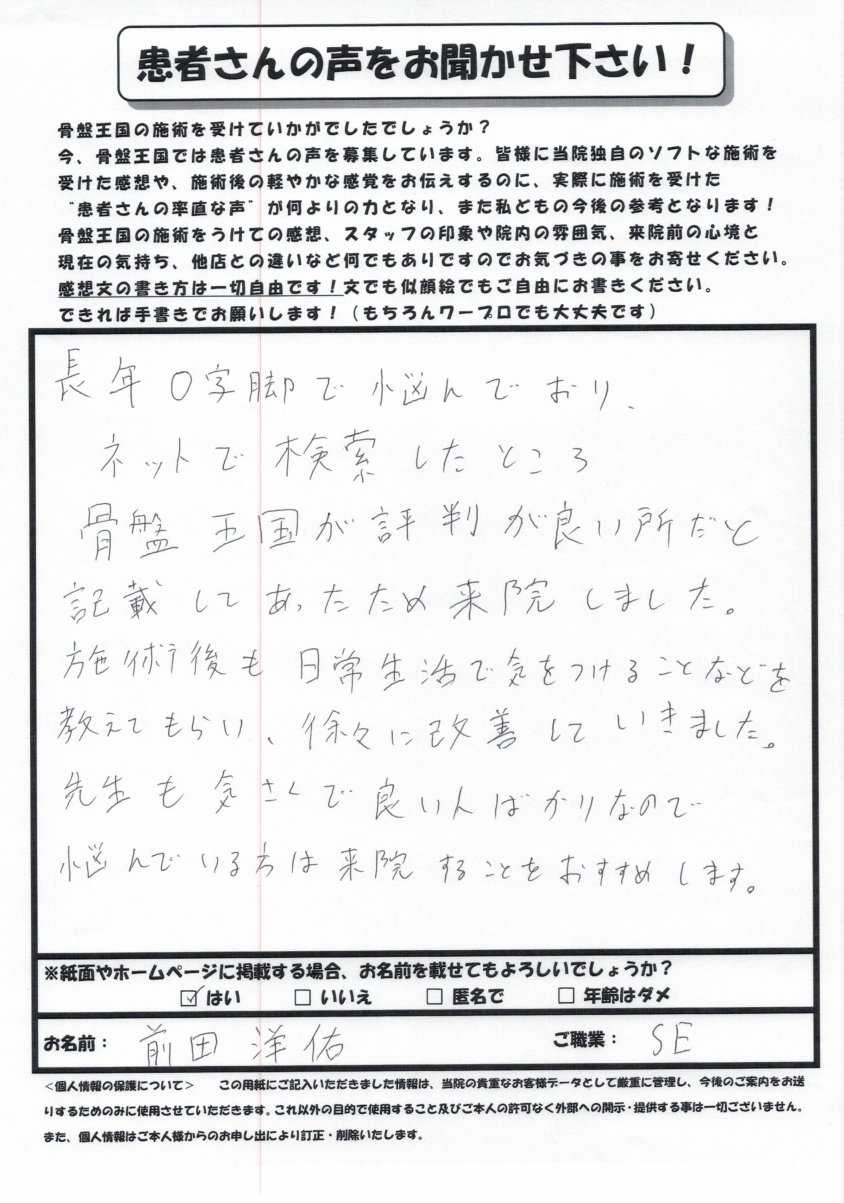 患者さんの声をお聞かせ下さい！
骨盤王国の施術を受けていかがでしたでしょうか？
今、骨盤王国では患者さんの声を募集しています。皆様に当院独自のソフトな施術を
受けた感想や、施術後の軽やかな感覚をお伝えするのに、実際に施術を受けた
"患者さんの率直な声"が何よりの力となり、また私どもの今後の参考となります！
骨盤王国の施術をうけての感想、スタッフの印象や院内の雰囲気、来院前の心境と
現在の気持ち、他店との違いなど何でもありですのでお気づきの事をお寄せください。
感想文の書き方は一切自由です！文でも似顔絵でもご自由にお書きください。
できれば手書きでお願いします！（もちろんワープロでも大丈夫です）
長年O字脚で悩んでおり、
ネットで検索したところ
骨盤王国が評判が良い所だと
記載してあったため来院しました。
施術後も日常生活で気をつけることなどを
教えてもらい、徐々に改善していきました。
先生も気さくで良い人ばかりなので
悩んでいる方は来院することをおすすめします。
※紙面やホームページに掲載する場合、お名前を載せてもよろしいでしょうか？
☑はい □いいえ □匿名で □年齢はダメ
お名前： 前田洋佑 ご職業： SE
＜個人情報の保護について＞ この用紙にご記入いただきました情報は、当院の貴重なお客様データとして厳重に管理し、今後のご案内をお送
りするためのみに使用させていただきます。これ以外の目的で使用すること及びご本人の許可なく外部への開示・提供する事は一切ございません。
また、個人情報はご本人様からのお申し出により訂正・削除いたします。